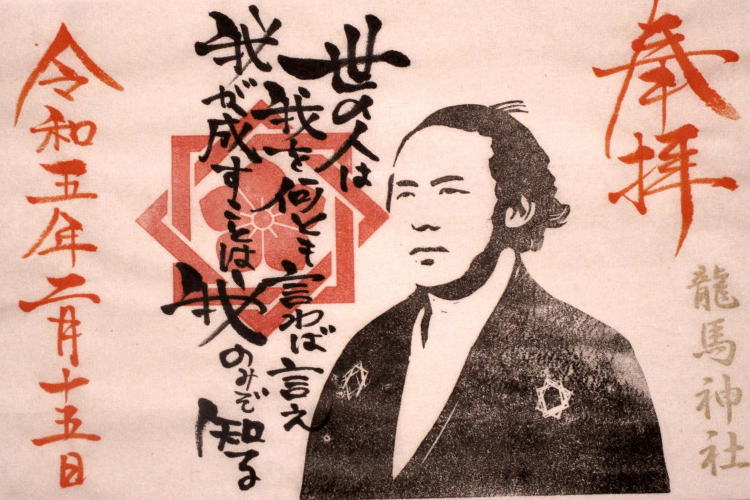 奉拝
龍馬神社
世の人は
我を何とも言わば言え
我が成すことは我のみぞ知る
令和五年二月十五日